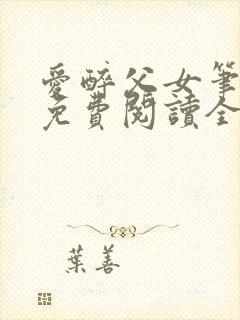 愛醉父女筆
免費閱讀全
葉善